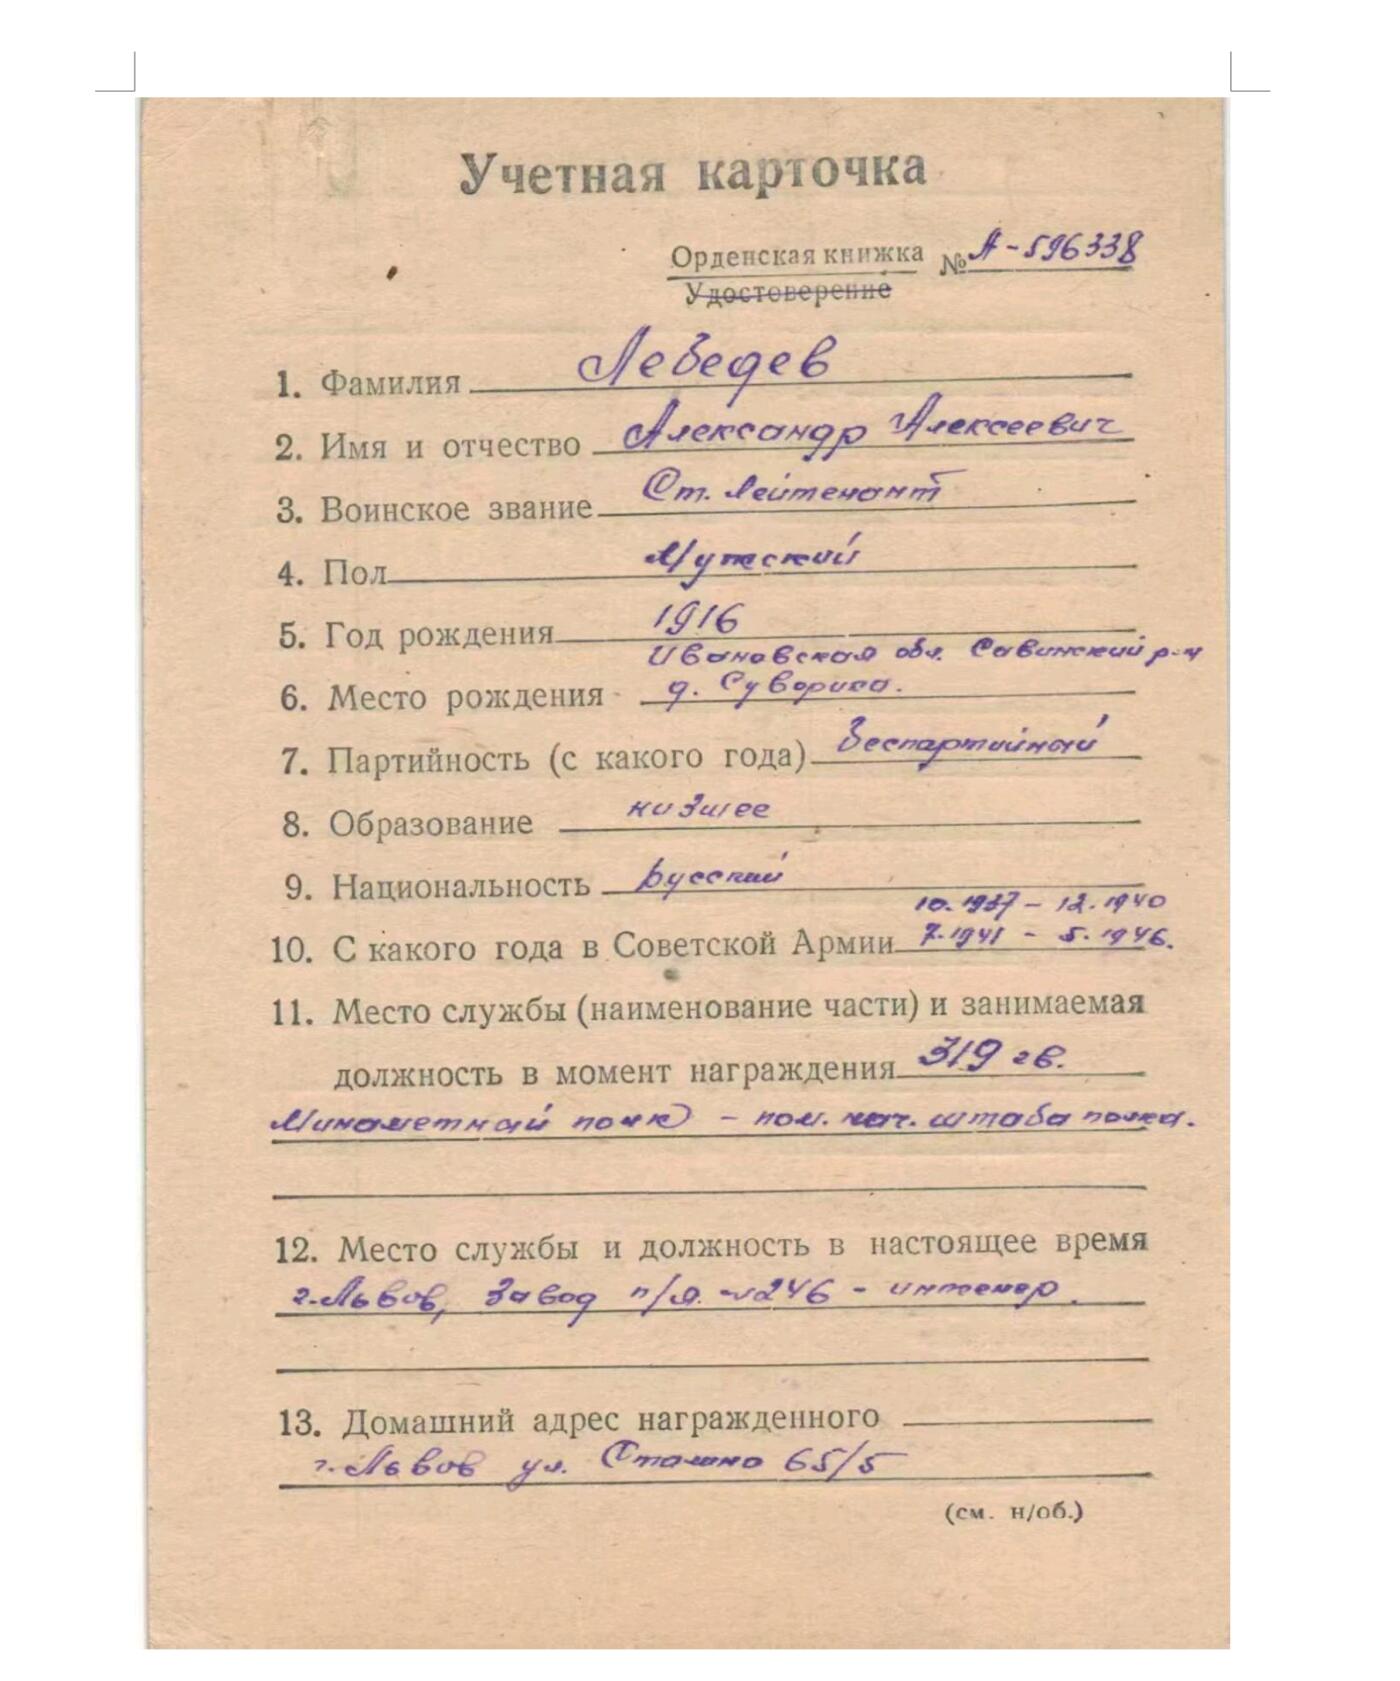 Учетная карточка
Орденская книжка № А-596338
Удостоверение
1. Фамилия Лебедев
2. Имя и отчество Александр Алексеевич
3. Воинское звание Ст. Лейтенант
4. Пол Мужской
5. Год рождения 1916
Ивановская обл. Савинский р-н
6. Место рождения д. Суворика.
7. Партийность (с какого года) Беспартийный
8. Образование низшее
9. Национальность Русский
10.1937 - 12.1940
10. С какого года в Советской Армии 7.1941 - 5.1946.
11. Место службы (наименование части) и занимаемая
должность в момент награждения 319 гв.
Минометный полк - пом. нач. штаба полка.
12. Место службы и должность в настоящее время
г. Львов, Завод п/я. №246 - инженер.
13. Домашний адрес награжденного
г. Львов ул. 65/5
(см. н/об.)